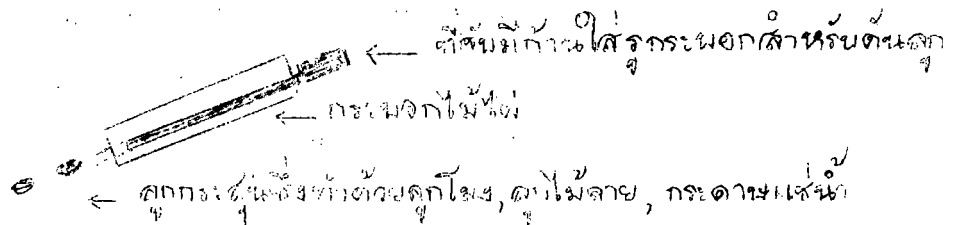 ที่จับมีก้านใส่รูกระบอกสำหรับดันลูก
กระบอกไม้ไผ่
ลูกกระสุนซึ่งทำด้วยลูกโพง, ลูกไม้ลาย, กระดาษแช่น้ำ